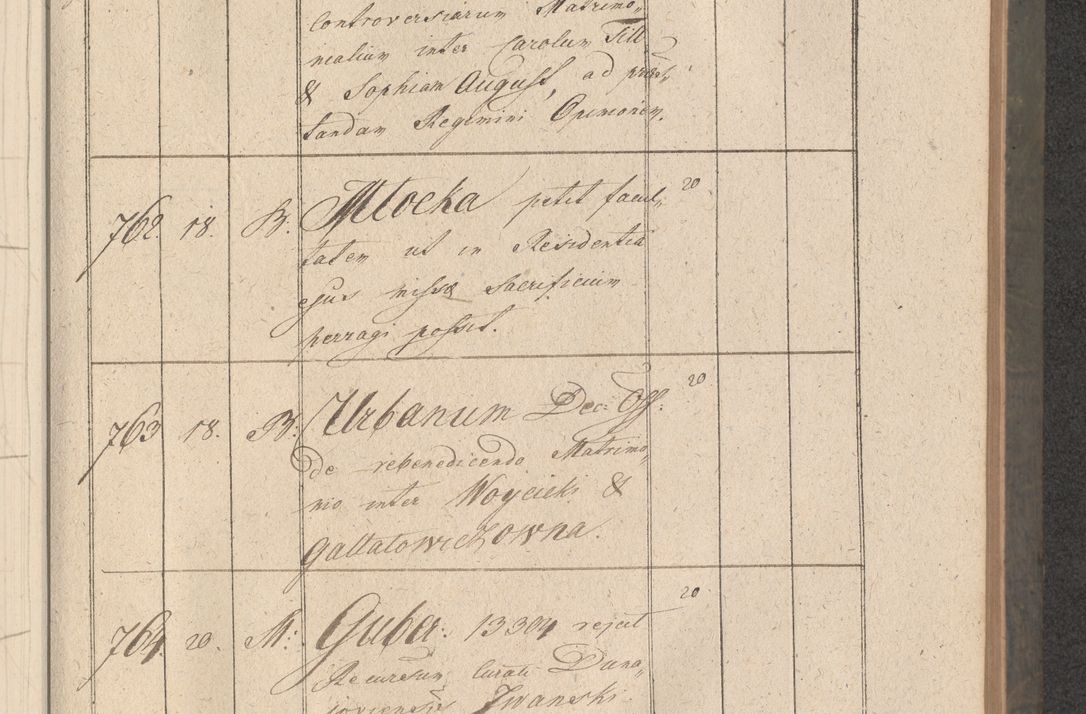 Controversiarum Matrimo„
nialium inter Carolum Till
& Sophiam August, ad præst„
tandam Regimini Opinionem.
762. 18. B: Młocka petit facul„ 20
tatem ut in Residentia
ejus missæ Sacrificium
perragi possit.
763 18. B: Urbanum Dec: Off: 20
de rebenedicendo Matrimo„
nio inter Woycicki &
Gallatowiczowna.
764. 20. M: Guber: 13304 rejicit 20
Recursum Curati Duna„
joviensis Iwanski